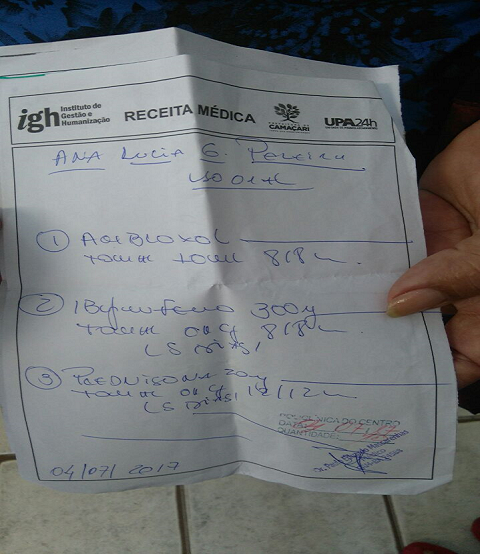 igh Instituto de Gestão e Humanização RECEITA MÉDICA CAMAÇARI UPA24h
ANA Lucia G. Pereira
USO ORAL
1 AMBROXOL
tomar 8/8h.
2 Ibuprofeno 300g
tomar 01 cp 8/8h
(5 DIAS)
3 PREDNISONA 20g
tomar 01 cp 12/12h
(5 DIAS)
POLICLINICA DO CENTRO
DATA
QUANTIDADE
04/07/2017